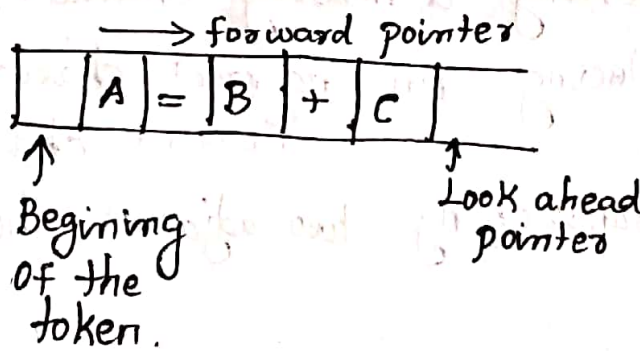 → forward pointer
A = B + C
Begining
Of the
token.
Look ahead
pointer